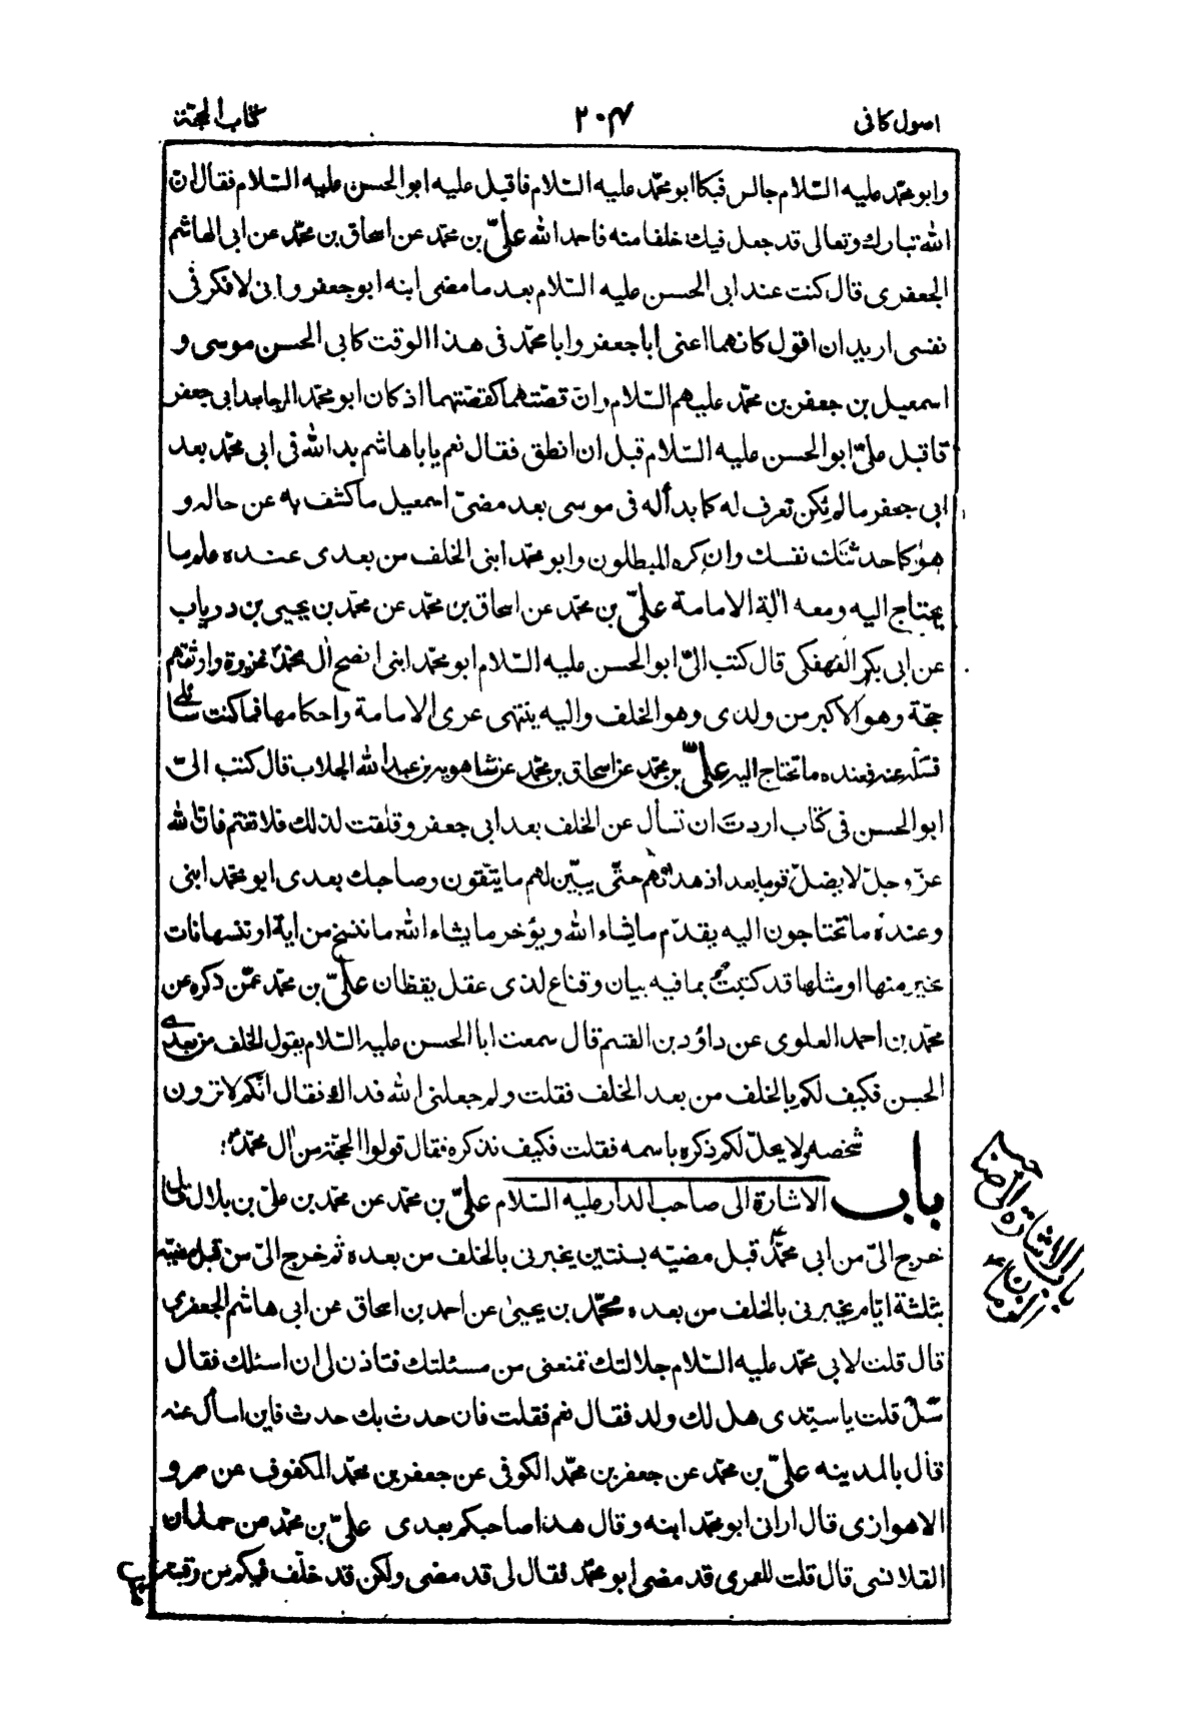 اصول كافى ٢٠٤ كتاب الحجّة
وابو محمّد عليه السّلام جالس فبكا ابو محمّد عليه السّلام فاقبل عليه ابو الحسن عليه السّلام فقال ان
الله تبارك وتعالى قد جعل فيك خلفا منه فاحد الله علىّ بن محمّد عن اسحاق بن محمّد عن ابى الهاشم
الجعفرى قال كنت عند ابى الحسن عليه السّلام بعد ما مضى ابنه ابو جعفر وانى لافكر فى
نفسى اريد ان اقول كانهما اعنى ابا جعفر وابا محمّد فى هذا الوقت كابى الحسن موسى و
اسمعيل بن جعفر بن محمّد عليهم السّلام وانّ قصّتهما كقصّتهما اذ كان ابو محمّد المرجا بعد ابى جعفر
فاقبل علىّ ابو الحسن عليه السّلام قبل ان انطق فقال نعم يا باهاشم بد الله فى ابى محمّد بعد
ابى جعفر ما لم يكن تعرف له كما بدأ له فى موسى بعد مضىّ اسمعيل ما كشف به عن حاله و
هو كما حدثتك نفسك وان كره المبطلون وابو محمّد ابنى الخلف من بعدى عنده علم ما
يحتاج اليه ومعه الة الامامة علىّ بن محمّد عن اسحاق بن محمّد عن محمّد بن يحيى بن درياب
عن ابى بكر الفهفكى قال كتب الىّ ابو الحسن عليه السّلام ابو محمّد ابنى انصح ال محمّد غريزة واوثقهم
حجّة وهو الاكبر من ولدى وهو الخلف واليه ينتهى عرى الامامة واحكامها فما كنت سائلى
فسله عنه فعنده ما تحتاج اليه علىّ بن محمّد عن اسحاق بن محمّد عن شاهويه بن عبد الله الجلاب قال كتب الىّ
ابو الحسن فى كتاب اردت ان تسأل عن الخلف بعد ابى جعفر وقلقت لذلك فلا تغتم فانّ الله
عزّ وجلّ لا يضلّ قوما بعد اذ هداهم حتّى يبيّن لهم ما يتّقون وصاحبك بعدى ابو محمّد ابنى
وعنده ما تحتاجون اليه يقدّم ما يشاء الله ويؤخر ما يشاء الله ما ننسخ من اية او ننسها نات
بخير منها او مثلها قد كتبت بما فيه بيان وقناع لذى عقل يقظان علىّ بن محمّد عمّن ذكره عن
محمّد بن احمد العلوى عن داؤد بن القسم قال سمعت ابا الحسن عليه السّلام يقول الخلف من بعدى
الحسن فكيف لكم بالخلف من بعد الخلف فقلت ولم جعلنى الله فداك فقال انّكم لا ترون
شخصه ولا يحلّ لكم ذكره باسمه فقلت فكيف نذكره فقال قولوا الحجّة من ال محمّد
باب الاشارة الى صاحب الدار عليه السّلام علىّ بن محمّد عن محمّد بن علىّ بن بلال قال
خرج الىّ من ابى محمّد قبل مضيّه بسنتين يخبرنى بالخلف من بعده ثم خرج الىّ من قبل مضيّه
بثلثة ايّام يخبرنى بالخلف من بعده محمّد بن يحيى عن احمد بن اسحاق عن ابى هاشم الجعفرى
قال قلت لابى محمّد عليه السّلام جلالتك تمنعنى من مسئلتك فتاذن لى ان اسئلك فقال
سل قلت يا سيّدى هل لك ولد فقال نعم فقلت فان حدث بك حدث فاين اسأل عنه
قال بالمدينه علىّ بن محمّد عن جعفر بن محمّد الكوفى عن جعفر بن محمّد المكفوف عن عمرو
الاهوازى قال ارانى ابو محمّد ابنه وقال هذا صاحبكم بعدى علىّ بن محمّد عن حمدان
القلانسى قال قلت للعمرى قد مضى ابو محمّد فقال لى قد مضى ولكن قد خلّف فيكم من رقبته
باب الاشارة الى صاحب الزمان